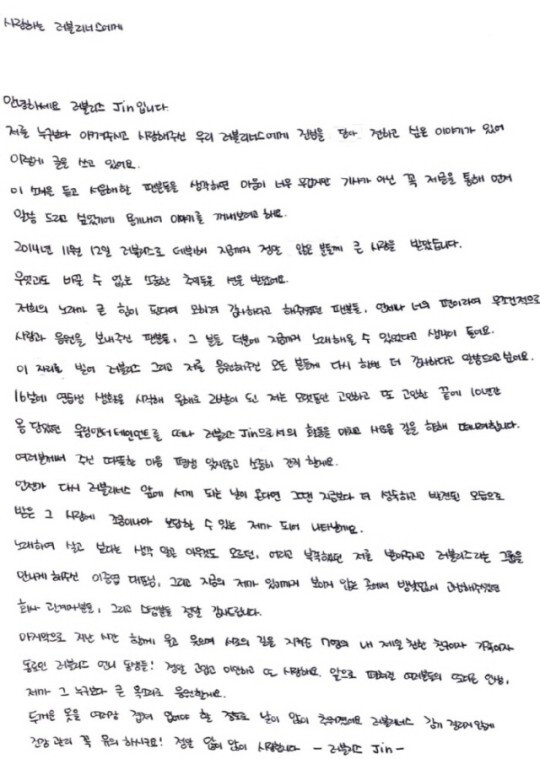 사랑하는 러블리너스에게
안녕하세요 러블리즈 Jin입니다.
저를 누구보다 아껴주시고 사랑해주신 우리 러블리너스에게 진심을 담아 전하고 싶은 이야기가 있어
이렇게 글을 쓰고 있어요.
이 소식을 듣고 서운해할 팬분들을 생각하면 마음이 너무 무겁지만 기사가 아닌 꼭 저를 통해 먼저
말씀 드리고 싶었기에 용기내어 이야기를 꺼내보려고 해요.
2014년 11월 12일 러블리즈로 데뷔해 지금까지 정말 많은 분들께 큰 사랑을 받았습니다.
무엇과도 바꿀 수 없는 소중한 추억들을 선물 받았어요.
저희의 노래가 큰 힘이 된다며 오히려 감사하다고 해주셨던 팬분들, 언제나 너의 편이라며 무조건적으로
사랑과 응원을 보내주신 팬분들, 그 분들 덕분에 지금까지 노래해올 수 있었다고 생각이 들어요.
이 자리를 빌어 러블리즈 그리고 저를 응원해주신 모든 분들께 다시 한번 더 감사하다고 말씀드리고 싶어요.
16살에 연습생 생활을 시작해 올해로 26살이 된 저는 오랫동안 고민하고 또 고민한 끝에 10년간
몸 담았던 울림엔터테인먼트를 떠나 러블리즈 Jin으로서의 활동을 마치고 새로운 길을 향해 떠나려합니다.
여러분께서 주신 따뜻한 마음 평생 잊지않고 소중히 간직 할게요.
언젠가 다시 러블리너스 앞에 서게 되는 날이 온다면 그땐 지금보다 더 성숙하고 발전된 모습으로
받은 그 사랑에 조금이나마 보답할 수 있는 제가 되어 나타날게요.
노래하며 살고 싶다는 생각 말고 아무것도 모르던, 어리고 부족했던 저를 받아주시고 러블리즈라는 그룹을
만나게 해주신 이중엽 대표님, 그리고 지금의 제가 있기까지 보이지 않는 곳에서 밤낮없이 고생해주셨던
회사 관계자분들, 그리고 스텝분들 정말 감사드립니다.
마지막으로 지난 시간 함께 울고 웃으며 서로의 길을 지켜준 7명의 내 제일 친한 친구이자 가족이자
동료인 러블리즈 언니 동생들! 정말 고맙고 미안하고 또 사랑해요. 앞으로 펼쳐질 여러분들의 또다른 인생,
제가 그 누구보다 큰 목소리로 응원할게요.
두꺼운 옷을 여러장 겹쳐 입어야 할 정도로 날이 많이 추워졌어요 러블리너스 감기 걸리지않게
건강 관리 꼭 유의 하시구요! 정말 많이 많이 사랑합니다 - 러블리즈 Jin -